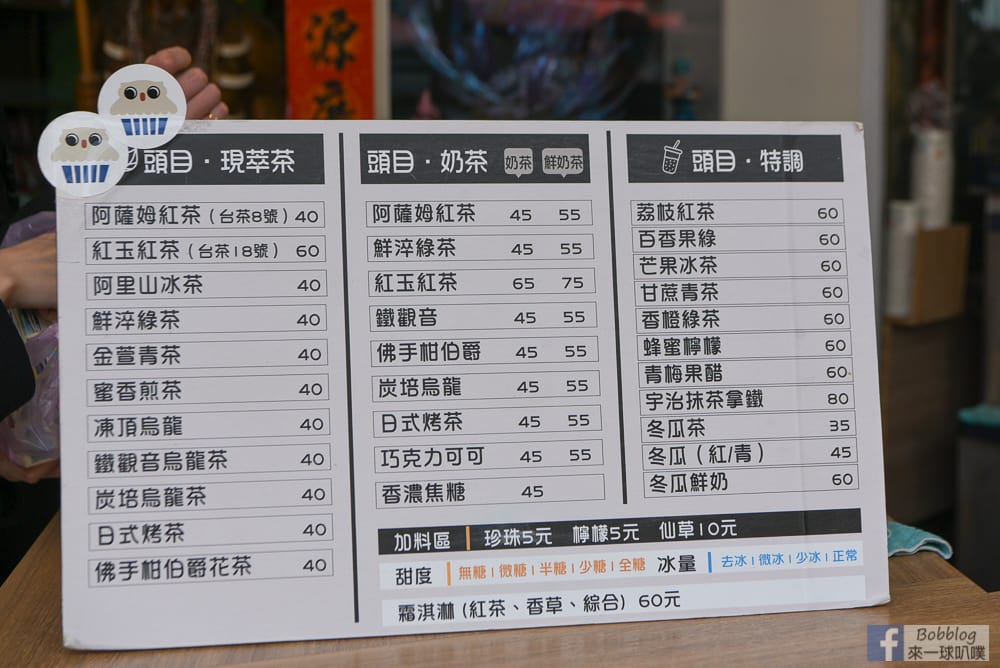 源
頭目·現萃茶
阿薩姆紅茶(台茶8號) 40
紅玉紅茶(台茶18號) 60
阿里山冰茶 40
鮮淬綠茶 40
金萱青茶 40
蜜香煎茶 40
凍頂烏龍 40
鐵觀音烏龍茶 40
炭培烏龍茶 40
日式烤茶 40
佛手柑伯爵花茶 40
頭目·奶茶 奶茶 鮮奶茶
阿薩姆紅茶 45 55
鮮淬綠茶 45 55
紅玉紅茶 65 75
鐵觀音 45 55
佛手柑伯爵 45 55
炭培烏龍 45 55
日式烤茶 45 55
巧克力可可 45 55
香濃焦糖 45
頭目·特調
荔枝紅茶 60
百香果綠 60
芒果冰茶 60
甘蔗青茶 60
香橙綠茶 60
蜂蜜檸檬 60
青梅果醋 60
宇治抹茶拿鐵 80
冬瓜茶 35
冬瓜(紅/青) 45
冬瓜鮮奶 60
加料區 | 珍珠5元 檸檬5元 仙草10元
甜度 | 無糖|微糖|半糖|少糖|全糖 冰量 | 去冰|微冰|少冰|正常
霜淇淋(紅茶、香草、綜合) 60元
f Bobblog
來一球叭噗